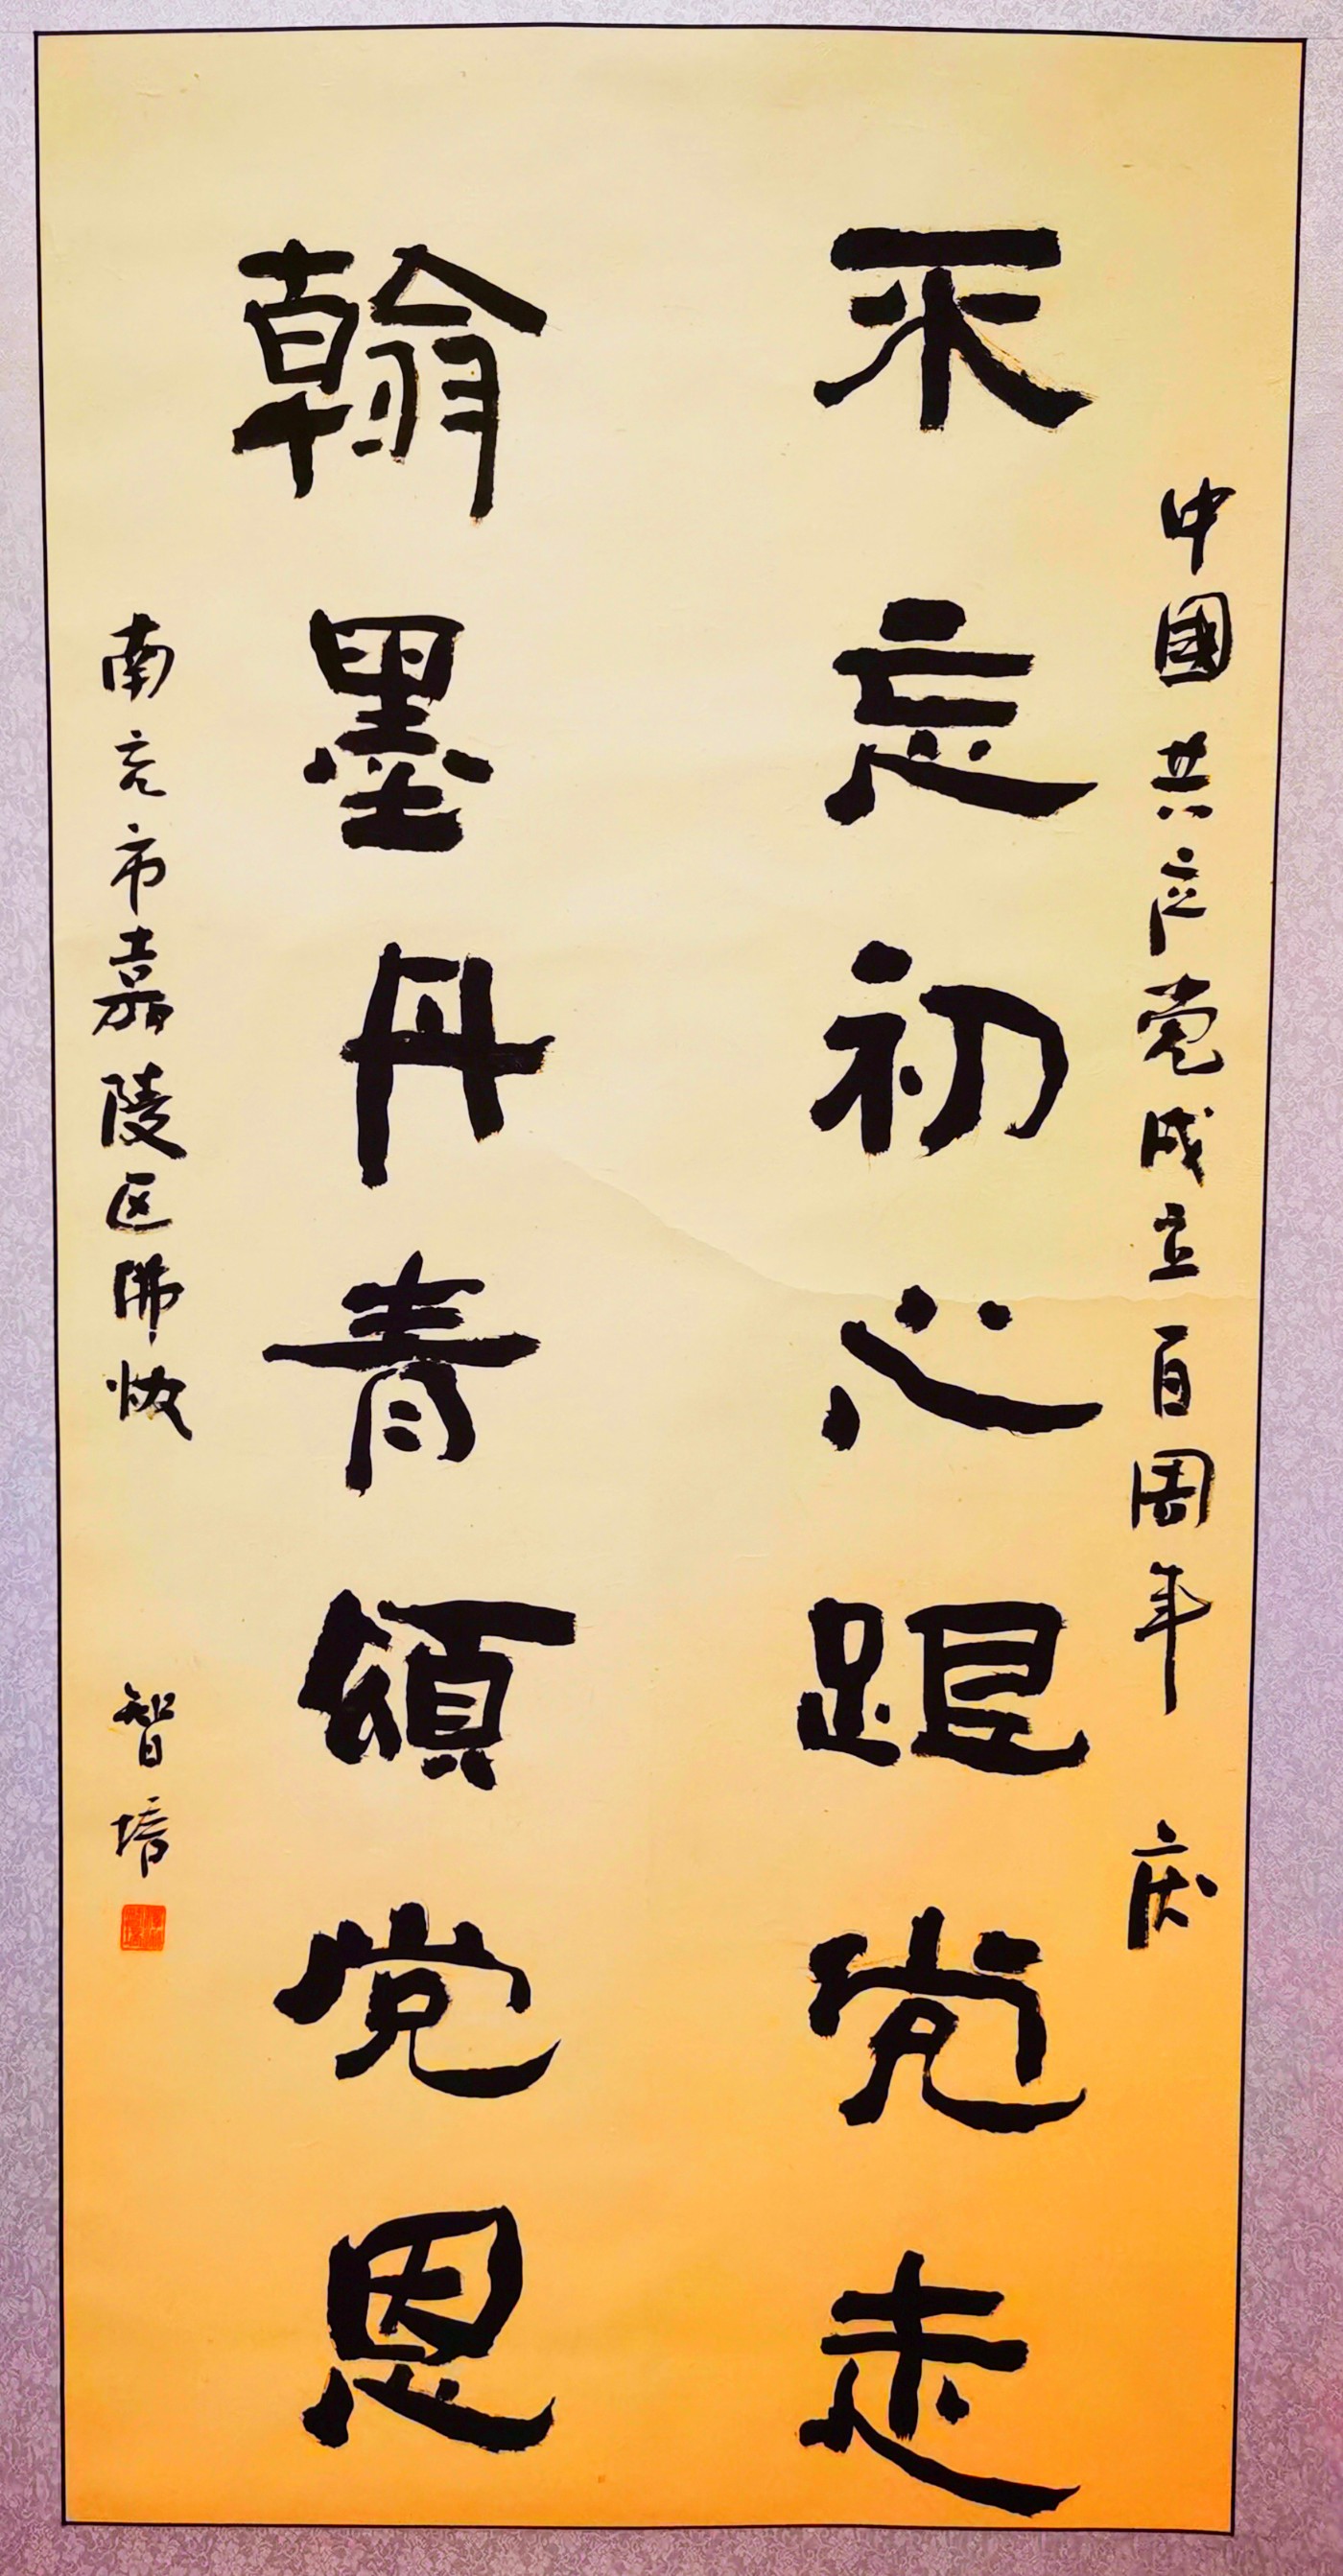 中國共产党成立百周年 庆
不忘初心跟党走
翰墨丹青頌党恩
南充市嘉陵区佛协 智培